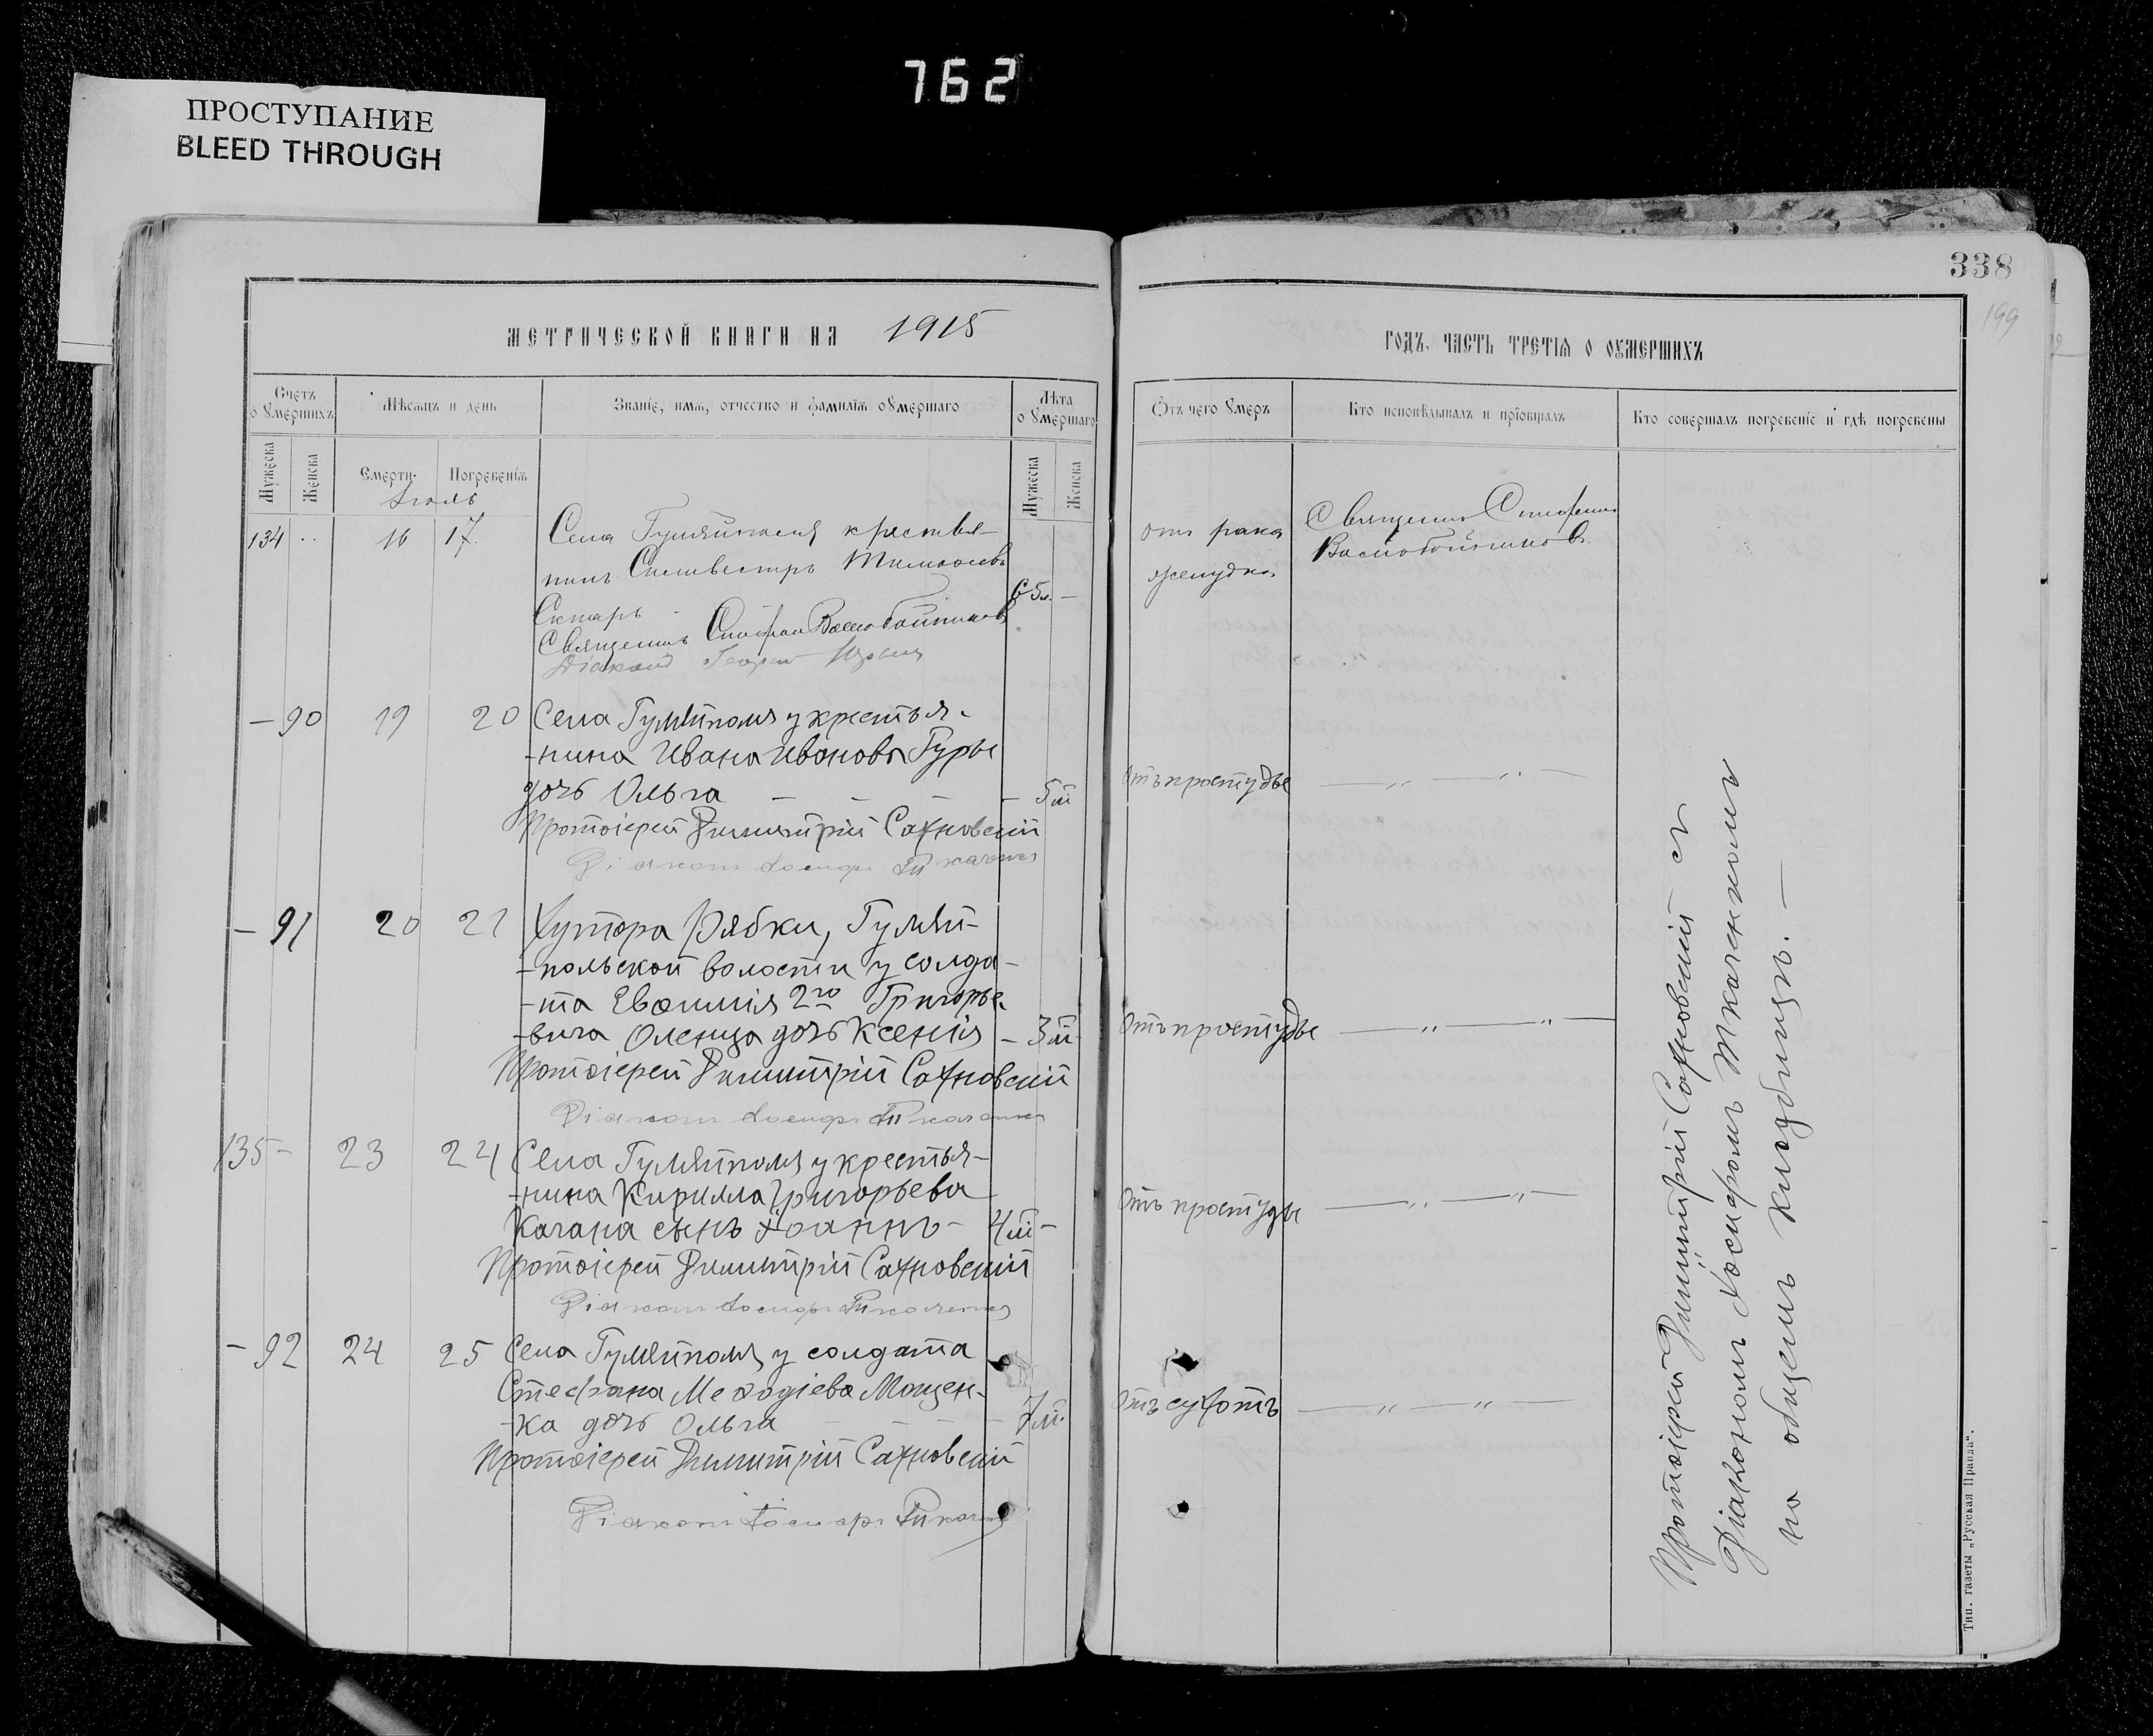 762
ПРОСТУПАНИЕ
BLEED THROUGH
338
199
МЕТРИЧЕСКОЙ КНИГИ НА 1915
ГОДЪ. ЧАСТЬ ТРЕТІЯ О ОУМЕРШИХЪ
Счетъ о умершихъ
Мѣсяцъ и день
Званіе, имя, отчество и фамилія оумершаго
Лѣта оумершаго
Отъ чего умеръ
Кто исповѣдывалъ и пріобщалъ
Кто совершалъ погребеніе и гдѣ погребены
Мужеска
Женска
Смерти.
Погребенія
Мужеска
Женска
Іюль
134 16 17. Села Гуляйполя крестья-
нинъ Сильвестръ Тимоѳеевъ
65 л. —
Священникъ Стефанъ
Діаконъ Георгій
отъ рака
желудка
Священникъ Стефанъ
— 90 19 20 Села Гуляйполя у крестья-
-нина Ивана Иванова Гуры
дочь Ольга — — — — 5 м
Протоіерей Димитрій Сахновскій
Діаконъ Іосифъ Ткаченко
Отъ простуды — „ — „ —
— 91 20 21 Хутора Рябки, Гуляй-
-польской волости у солда-
-та Евѳимія 2го Григорье-
-вича Оленца дочь Ксенія — 3 м
Протоіерей Димитрій Сахновскій
Діаконъ Іосифъ Ткаченко
Отъ простуды — „ — „ —
135 — 23 24 Села Гуляйполя у крестья-
-нина Кирилла Григорьева
Качана сынъ Іоаннъ — 4 м —
Протоіерей Димитрій Сахновскій
Діаконъ Іосифъ Ткаченко
Отъ простуды — „ — „ —
— 92 24 25 Села Гуляйполя у солдата
Стефана Меѳодіева Мощен-
-ка дочь Ольга — — — — 7 м.
Протоіерей Димитрій Сахновскій
Діаконъ Іосифъ Ткаченко
Отъ сухотъ — „ — „ —
Протоіерей Димитрій Сахновскій съ
Діакономъ Іосифомъ Ткаченкомъ
на общемъ кладбищѣ. —
Тип. газеты „Русская Правда“.